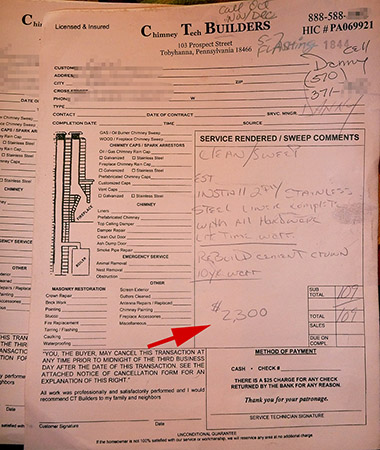 Call Oct
Nov/Dec
Licensed & Insured
CHIMNEY TECH BUILDERS
103 Prospect Street
Tobyhanna, Pennsylvania 18466
888-588-
HIC # PA069921
Flashing 1844
Cell
Danny
(570)
371-
CUSTOMER
ADDRESS
CITY
ZIP
CROSS
PHONE
W
TYPE
CONTACT
DATE OF CONTRACT
SRVC. MNGR
COMPLETION DATE
TIME
SOURCE
GAS / Oil Burner Chimney Sweep
WOOD / Fireplace Chimney Sweep
CHIMNEY CAPS / SPARK ARRESTORS
Oil / Gas Chimney Rain Cap
Galvanized Stainless Steel
Fireplace Chimney Rain Cap
Galvanized Stainless Steel
Customized Caps
Vent Caps
Galvanized Stainless Steel
CHIMNEY
Liners
Prefabricated Chimney
Top Ceiling Damper
Damper Repair
Clean Out Door
Ash Dump Door
Smoke Pipe Rearrange
EMERGENCY SERVICE
Animal Removal
Nest Removal
Obstruction
FIREPLACE
BOILER
SERVICE RENDERED / SWEEP COMMENTS
CLEAN/SWEEP
EST
INSTALL 25FT STAINLESS
STEEL LINER COMPLETE
WITH ALL HARDWARE
LIFETIME WARR
REBUILD CEMENT CROWN
10YR WARR
$2,300
MASONRY RESTORATION
Crown Repair
Brick Work
Painting
Stucco
Flue Replacement
Tarring / Flashing
Caulking
Waterproofing
OTHER
Screen Exterior
Gutters Cleaned
Antenna Repairs / Replaced
Chimney Painting
Fireplace Accessories
Miscellaneous
SUB TOTAL 109
TOTAL 109
SALES
DUE ON COMPL
"YOU, THE BUYER, MAY CANCEL THIS TRANSACTION AT
ANY TIME PRIOR TO MIDNIGHT OF THE THIRD BUSINESS
DAY AFTER THE DATE OF THIS TRANSACTION. SEE THE
ATTACHED NOTICE OF CANCELLATION FORM FOR AN
EXPLANATION OF THIS RIGHT."
All work was professionally and satisfactorily performed and I would
recommend CT Builders to my family and neighbors
Date
Customer Signature
Date
METHOD OF PAYMENT
CASH • CHECK #
THERE IS A $25 CHARGE FOR ANY CHECK
RETURNED BY THE BANK FOR ANY REASON.
Thank you for your patronage.
SERVICE TECHNICIAN SIGNATURE
UNCONDITIONAL GUARANTEE
If the homeowner is not 100% satisfied with our service or workmanship, we will reservice any area at no additional charge